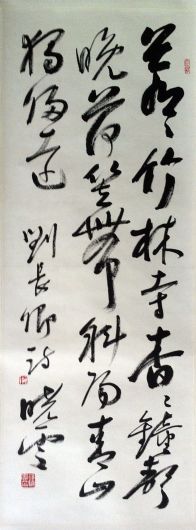 蒼〻竹林寺杳〻鐘聲
晚荷笠帶斜陽青山
獨歸遠 劉長卿詩 曉雲